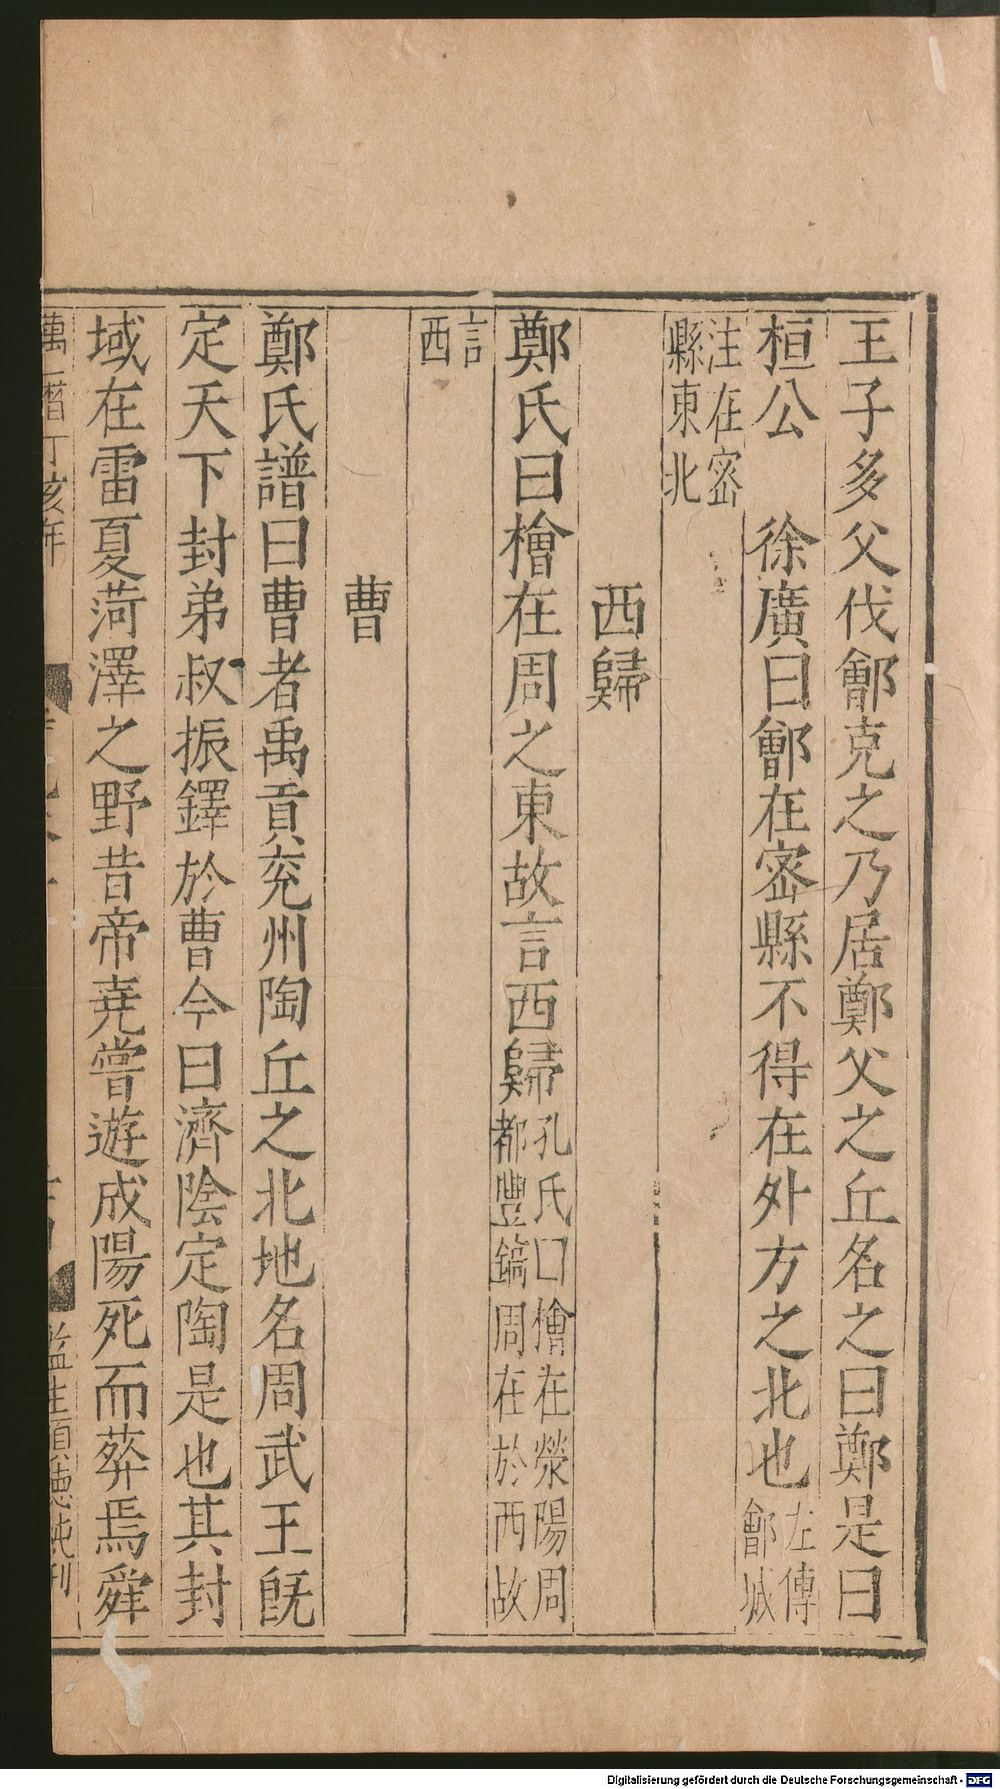 王子多父伐鄶克之乃居鄭父之丘名之曰鄭是曰
桓公　徐廣曰鄶在密縣不得在外方之北也左傳鄶城
注在密縣東北
西歸
鄭氏曰檜在周之東故言西歸孔氏曰檜在滎陽周都豐鎬周在於西故
言西
曹
鄭氏譜曰曹者禹貢兖州陶丘之北地名周武王旣
定天下封弟叔振鐸於曹今曰濟陰定陶是也其封
域在雷夏菏澤之野昔帝堯嘗遊成陽死而葬焉舜
萬曆丁亥年
監生頂德純刊
Digitalisierung gefördert durch die Deutsche Forschungsgemeinschaft - DFG